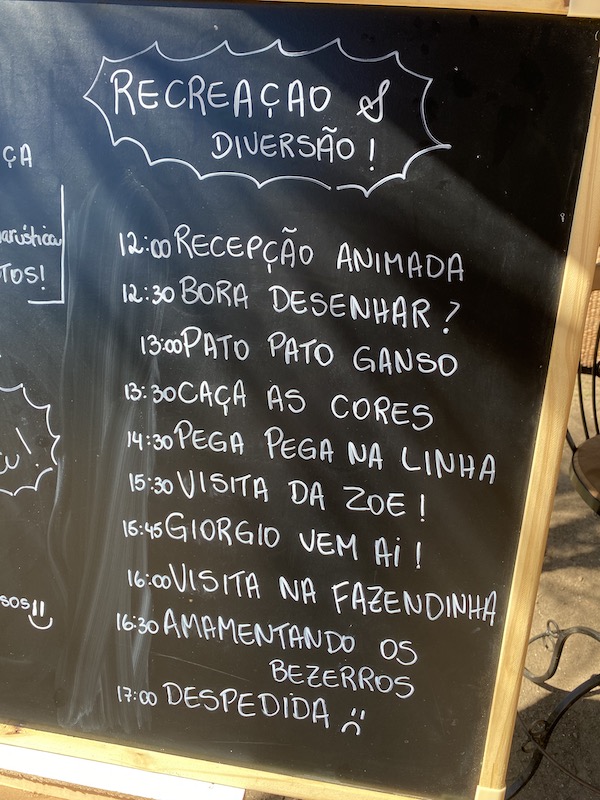 RECREAÇAO &
DIVERSÃO!
ÇA
TOS!
12:00 RECEPÇÃO ANIMADA
12:30 BORA DESENHAR?
13:00 PATO PATO GANSO
13:30 CAÇA AS CORES
14:30 PEGA PEGA NA LINHA
15:30 VISITA DA ZOE!
15:45 GIORGIO VEM Aí!
16:00 VISITA NA FAZENDINHA
sos!!
16:30 AMAMENTANDO OS
BEZERROS
17:00 DESPEDIDA